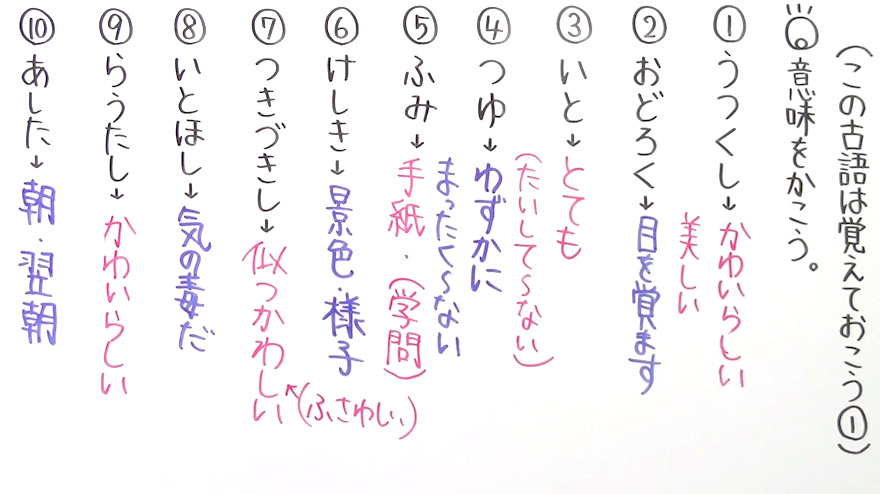 (この古語は覚えておこう①)
意味をかこう。
①うつくし→かわいらしい
美しい
②おどろく→目を覚ます
③いと→とても
(たいして~ない)
④つゆ→わずかに
まったく~ない
⑤ふみ→手紙・(学問)
⑥けしき→景色・様子
⑦つきづきし→似つかわしい
(ふさわしい)
⑧いとほし→気の毒だ
⑨らうたし→かわいらしい
⑩あした→朝・翌朝